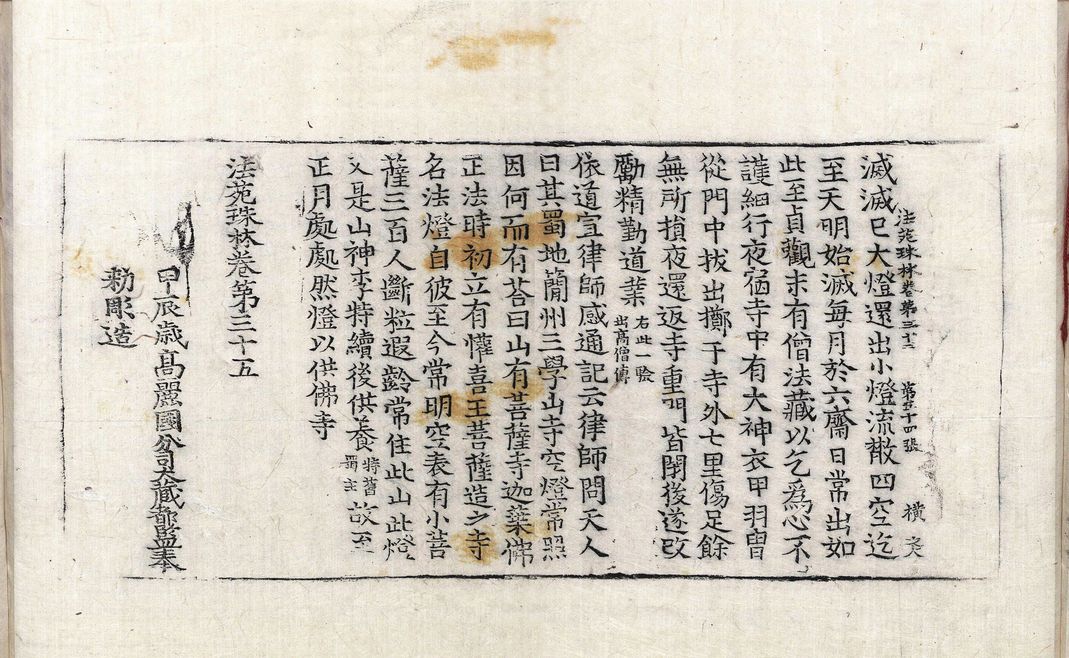 法苑珠林卷第三十五 第五十四張 橫
滅滅已大燈還出小燈流散四空迄
至天明始滅每月於六齋日常出如
此至貞觀末有僧法藏以乞爲心不
護細行夜宿寺中有大神衣甲羽冑
從門中拔出擲于寺外七里傷足餘
無所損夜還返寺重門皆閉後遂改
勵精勤道業 右此一驗出高僧傳
依道宣律師感通記云律師問天人
曰其蜀地簡州三學山寺空燈常照
因何而有荅曰山有菩薩寺迦葉佛
正法時初立有懽喜王菩薩造之寺
名法燈自彼至今常明空表有小菩
薩三百人斷粒遐齡常住此山此燈
又是山神李特續後供養 特舊蜀主 故至
正月處處然燈以供佛寺
法苑珠林卷第三十五
甲辰歳高麗國分司大藏都監奉
勑彫造